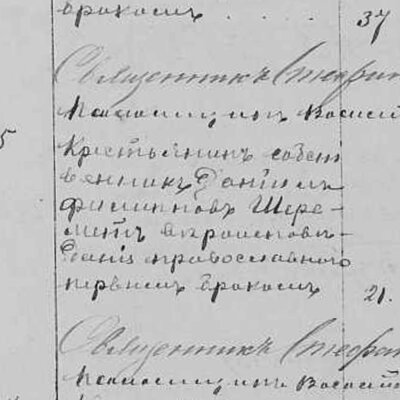 бракомъ . . . . 37
Священникъ Стефан
Псаломщикъ Васил
5
Крестьянинъ собст
венникъ Данiилъ
Филипповъ Шере-
метъ вѣроисповѣ-
данiя православного
первымъ бракомъ 21.
Священникъ Стефан
Псаломщикъ Васил